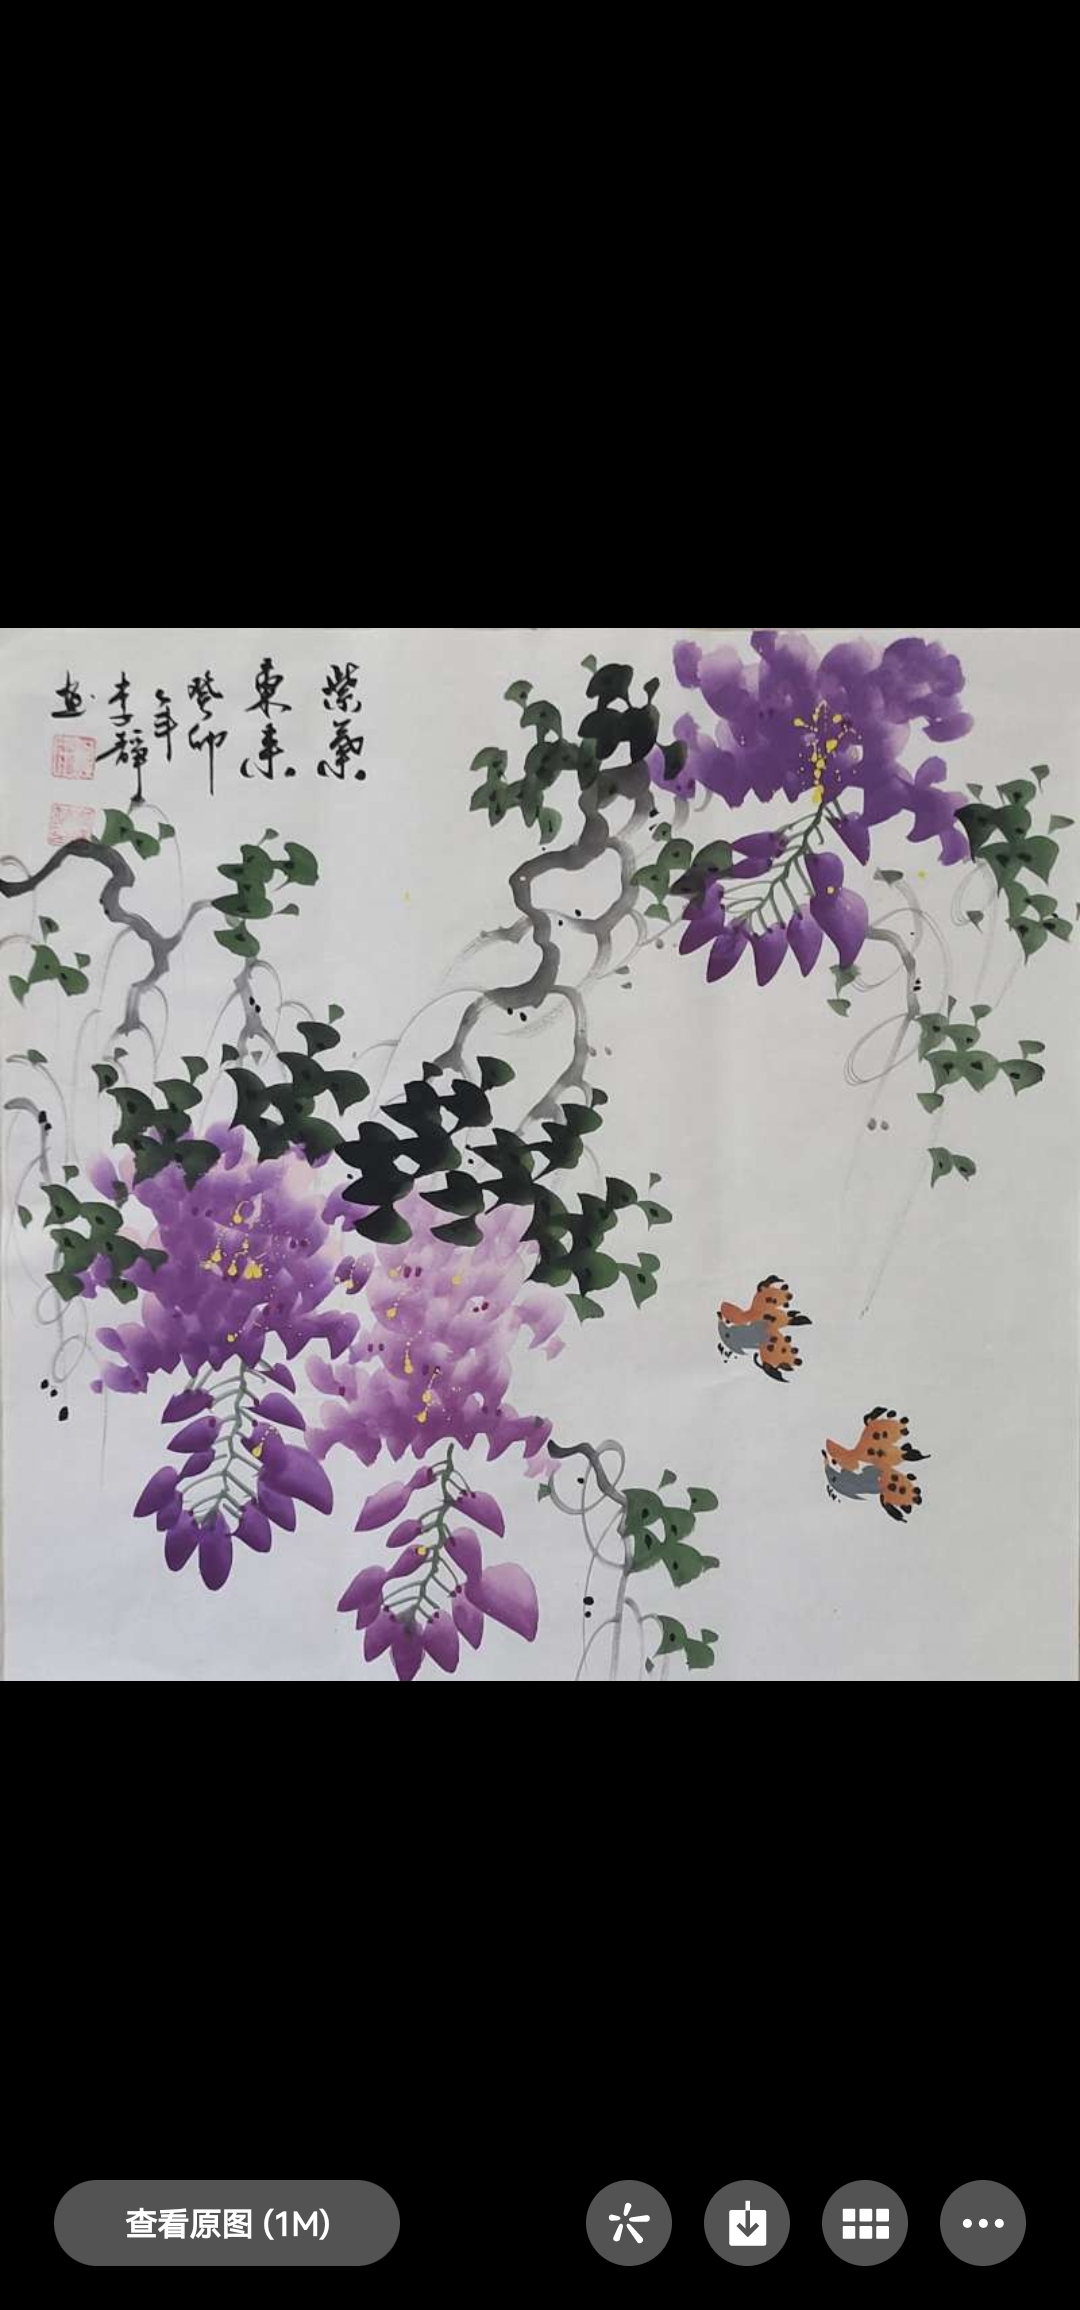 紫氣
東來
癸卯
年
李靜
畫
查看原图 (1M)